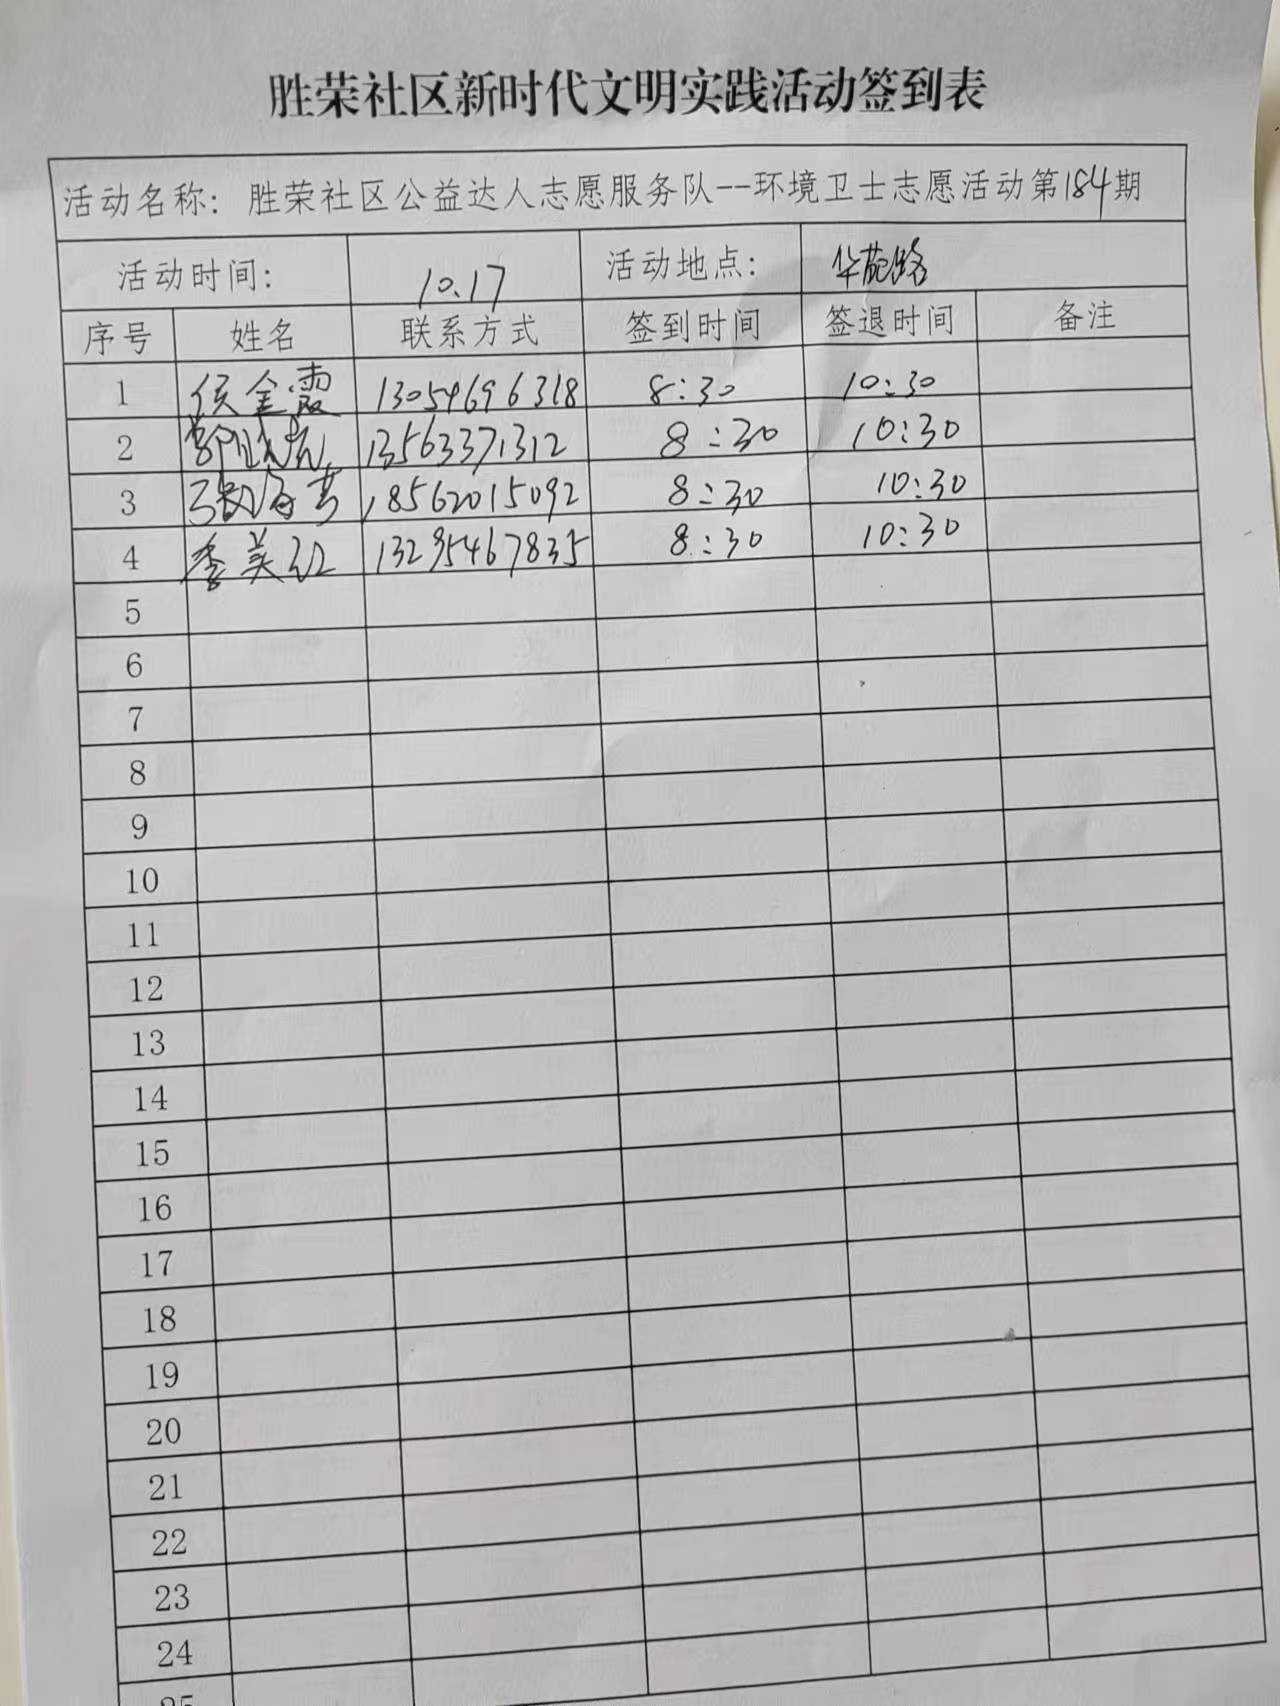 胜荣社区新时代文明实践活动签到表
活动名称: 胜荣社区公益达人志愿服务队--环境卫士志愿活动第184期
活动时间: 10.17 活动地点: 华苑路
序号 姓名 联系方式 签到时间 签退时间 备注
1 侯金霞 13054696318 8:30 10:30
2 13563371312 8:30 10:30
3 张海芳 18562015092 8:30 10:30
4 季美红 13295467835 8:30 10:30
5
6
7
8
9
10
11
12
13
14
15
16
17
18
19
20
21
22
23
24
25